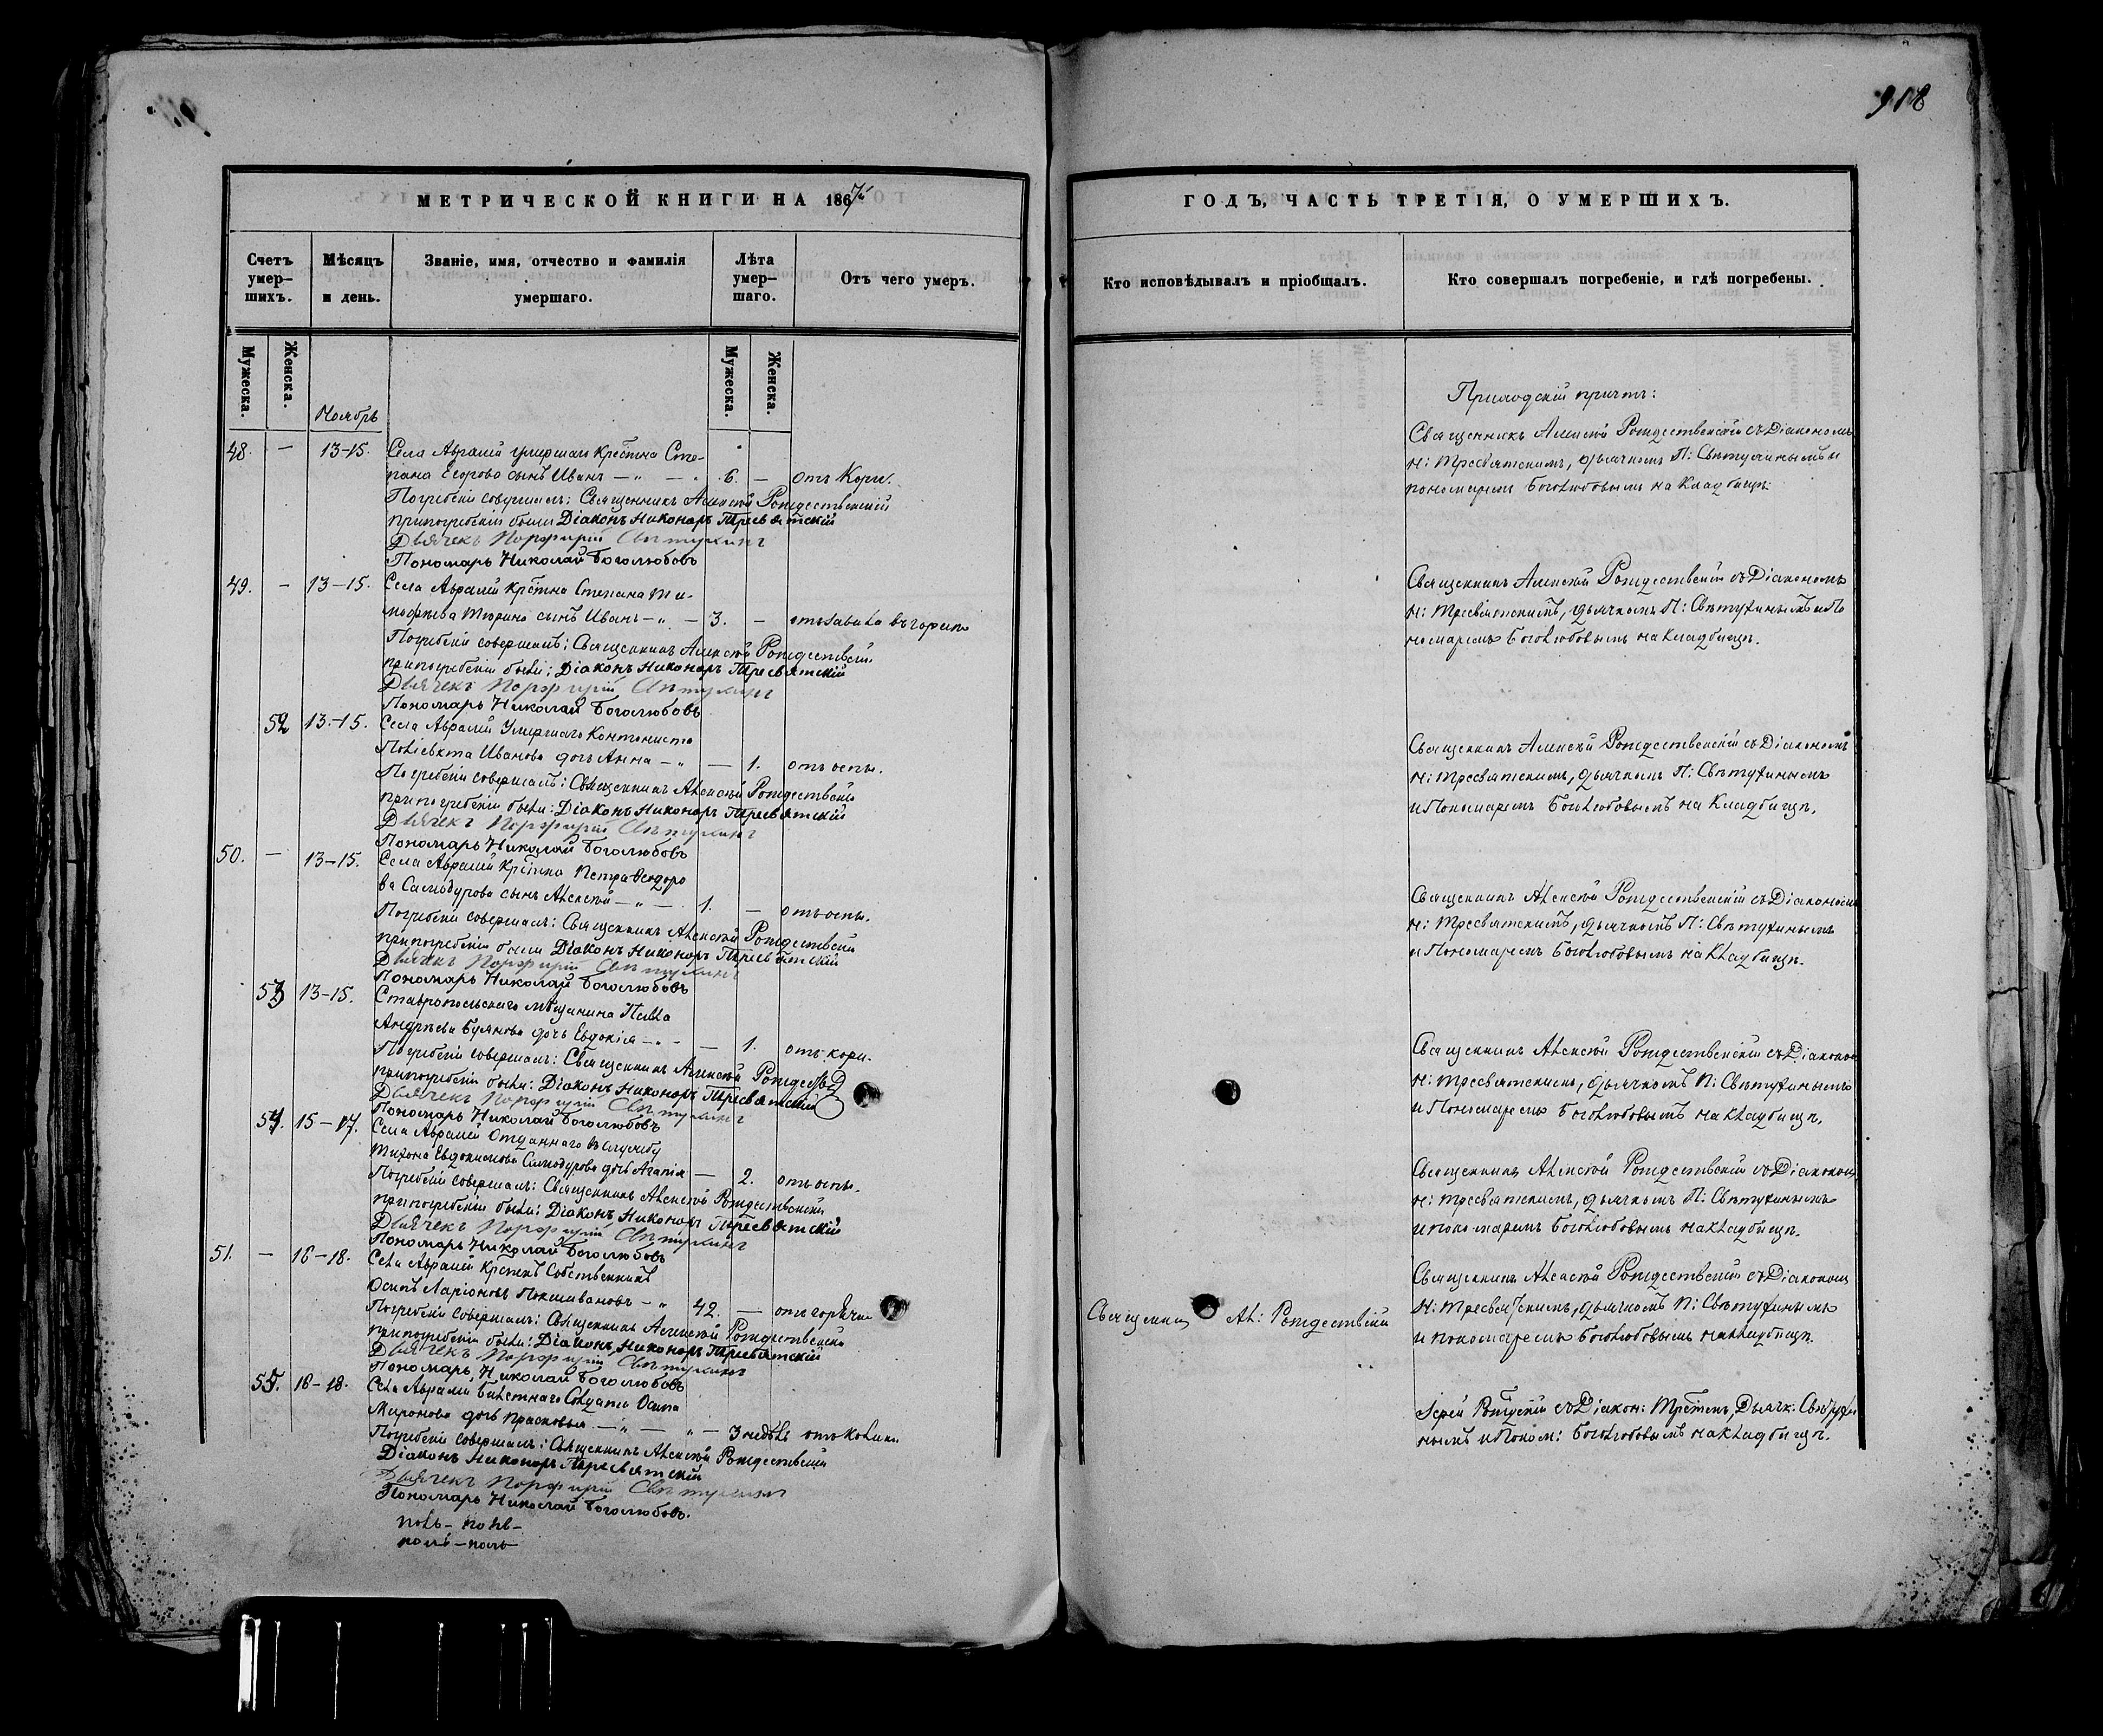 918
МЕТРИЧЕСКОЙ КНИГИ НА 1867
ГОДЪ, ЧАСТЬ ТРЕТІЯ, О УМЕРШИХЪ.
Счетъ умер-шихъ.
Мѣсяцъ и день.
Званіе, имя, отчество и фамилія умершаго.
Лѣта умер-шаго.
Отъ чего умеръ.
Кто исповѣдывалъ и пріобщалъ.
Кто совершалъ погребеніе, и гдѣ погребены.
Мужеска.
Женска.
Мужеска.
Женска.
Ноябрь
Приходскій причтъ:
48. — 13-15. Села Авралей умершаго Крестьнина Сте-
пана Егорова сынъ Иванъ — „ — 6. — отъ Кори.
Погребеніе совершалъ: Священникъ Алексѣй Рождественскій
при погребеніи были Діаконъ Никоноръ Тресвятскій
Дьячекъ Порфирій Свѣтухинъ
Пономарь Николай Боголюбовъ
Священникъ Алексѣй Рождественскій съ Діакономъ
Н: Тресвятскимъ, дьячкомъ П: Свѣтухинымъ и
пономаремъ Боголюбовымъ на Кладбищѣ.
49. — 13-15. Села Авралей Крестьнина Степана Ти-
мофѣева Тюрина сынъ Иванъ — „ — 3. —
Погребеніе совершалъ: Священникъ Алексѣй Рождественскій
при погребеніи были: Діаконъ Никоноръ Тресвятскій
Дьячекъ Порфирій Свѣтухинъ
Пономарь Николай Боголюбовъ
Священникъ Алексѣй Рождественскій съ Діакономъ
Н: Тресвятскимъ, дьячкомъ П: Свѣтухинымъ и По
номаремъ Боголюбовымъ на кладбищѣ.
52 13-15. Села Авралей Умершаго Кантониста
Поліевкта Иванова дочь Анна — „ — 1. отъ оспы.
Погребеніе совершалъ: Священникъ Алексѣй Рождественскій
при погребеніи были: Діаконъ Никоноръ Тресвятскій
Дьячекъ Порфирій Свѣтухинъ
Пономарь Николай Боголюбовъ
Священникъ Алексѣй Рождественскій съ Діакономъ
Н: Тресвятскимъ, дьячкомъ П: Свѣтухинымъ
и Пономаремъ Боголюбовымъ на Кладбищѣ.
50. — 13-15. Села Авралей Крестьнина Петра Ѳеодоро
ва Самодурова сынъ Алексѣй — „ — 1. — отъ оспы.
Погребеніе совершалъ: Священникъ Алексѣй Рождественскій
при погребеніи были Діаконъ Никоноръ Тресвятскій
Дьячекъ Порфирій Свѣтухинъ
Пономарь Николай Боголюбовъ
Священникъ Алексѣй Рождественскій съ Діакономъ
Н: Тресвятскимъ, дьячкомъ П: Свѣтухинымъ
и Пономаремъ Боголюбовымъ на кладбищѣ.
53 13-15. Ставропольскаго мѣщанина Павла
Андрѣева Буянова дочь Евдокія — „ — 1. отъ кори.
Погребеніе совершалъ: Священникъ Алексѣй Рождеств
при погребеніи были: Діаконъ Никоноръ Тресвятскій
Дьячекъ Порфирій Свѣтухинъ
Пономарь Николай Боголюбовъ
Священникъ Алексѣй Рождественскій съ Діакономъ
Н: Тресвятскимъ, дьячкомъ П: Свѣтухинымъ
и Пономаремъ Боголюбовымъ на кладбищѣ.
54. 15-17. Села Авралей Отданнаго въ службу
Тихона Евдокимова Самодурова дочь Агапія — 2. отъ оспы.
Погребеніе совершалъ: Священникъ Алексѣй Рождественскій
при погребеніи были: Діаконъ Никоноръ Тресвятскій
Дьячекъ Порфирій Свѣтухинъ
Пономарь Николай Боголюбовъ
Священникъ Алексѣй Рождественскій съ Діакономъ
Н: Тресвятскимъ, дьячкомъ П: Свѣтухинымъ
и пономаремъ Боголюбовымъ на кладбищѣ.
51. — 16-18. Села Авралей Собственникъ
Осипъ Ларіоновъ — „ 42. — отъ горячки
Погребеніе совершалъ: Священникъ Алексѣй Рождественскій
при погребеніи были: Діаконъ Никоноръ Тресвятскій
Дьячекъ Порфирій Свѣтухинъ
Пономарь Николай Боголюбовъ
Священникъ Ал: Рождественскій
Священникъ Алексѣй Рождественскій съ Діакономъ
Н: Тресвятскимъ, дьячкомъ П: Свѣтухинымъ
и пономаремъ Боголюбовымъ на кладбищѣ.
55. 16-18. Села Авралей билетнаго Солдата Осипа
Миронова дочь Прасковья — „ — „ — 3 недѣль
Погребеніе совершалъ: Священникъ Алексѣй Рождественскій
Діаконъ Никоноръ Тресвятскій
Дьячекъ Порфирій Свѣтухинъ
Пономарь Николай Боголюбовъ.
Іерей съ Діакон: Дьячк: Свѣтухи
нымъ и Поном: Боголюбовымъ на кладбищѣ.